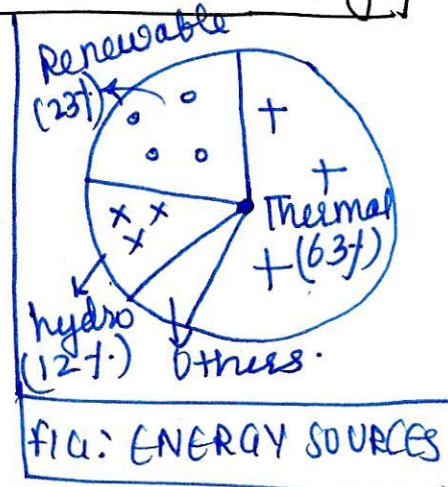 Renewable
(23%)
Thermal
(63%)
hydro
(12%)
Others.
FIG: ENERGY SOURCES